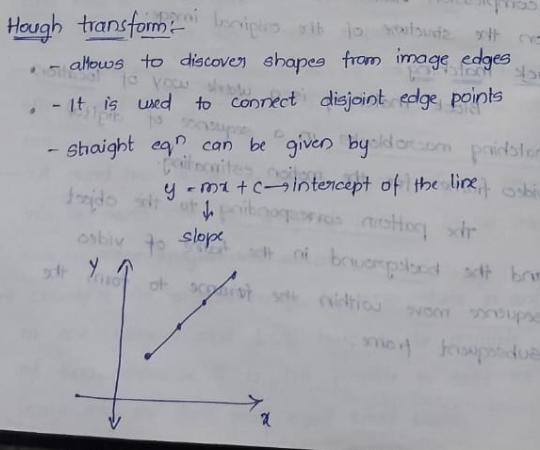 Hough transform:-
- allows to discover shapes from image edges
- It is used to connect disjoint edge points
- staight eqn can be given by
y = mx + c → intercept of the line
↓
slope
y
x